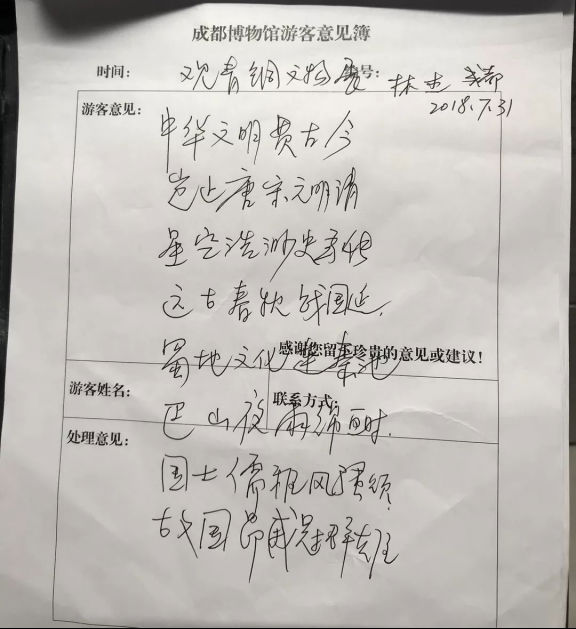 成都博物馆游客意见簿
时间: 观青铜文物展 号: 林 成都
2018.7.31
游客意见:
中华文明贯古今
岂止唐宋元明清
星空浩渺史承传
远古春秋战国延.
感谢您留下珍贵的意见或建议!
蜀地文化连秦地
游客姓名: 联系方式:
巴山夜雨绵 时.
处理意见:
国士儒雅风骚领
故国 群雄